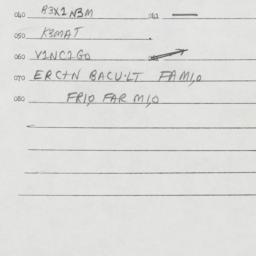 040 A3X1N3M 042 —
050 K3MAT
060 V1NC2GO
070 ERC+N BACU·LT FAM1,0
080 FR1,0 FAR M1,0